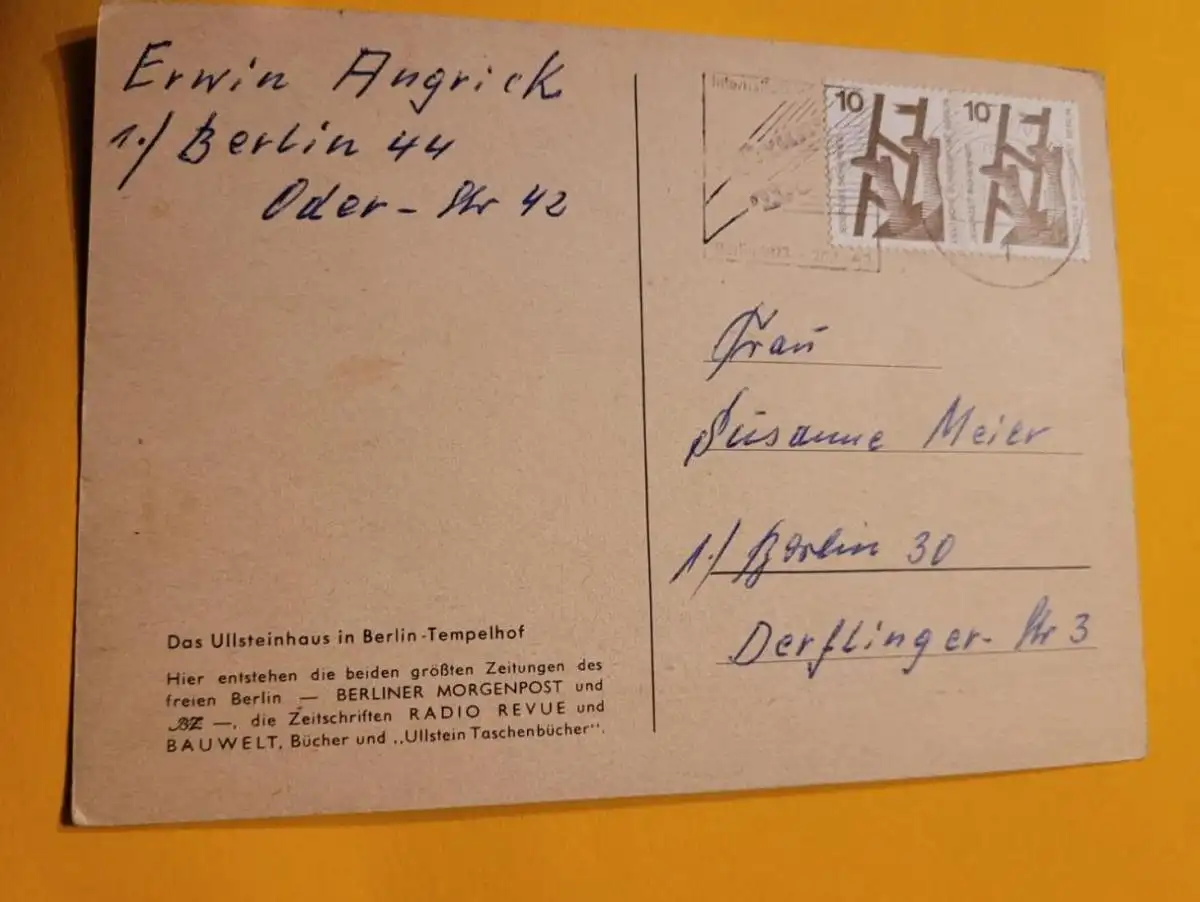 Erwin Angrick
1./ Berlin 44
Oder-Str 42
10
10
BERLIN
Frau
Susanne Meier
1./ Berlin 30
Derflinger-Str 3
Das Ullsteinhaus in Berlin-Tempelhof
Hier entstehen die beiden größten Zeitungen des
freien Berlin — BERLINER MORGENPOST und
BZ —, die Zeitschriften RADIO REVUE und
BAUWELT, Bücher und „Ullstein Taschenbücher".